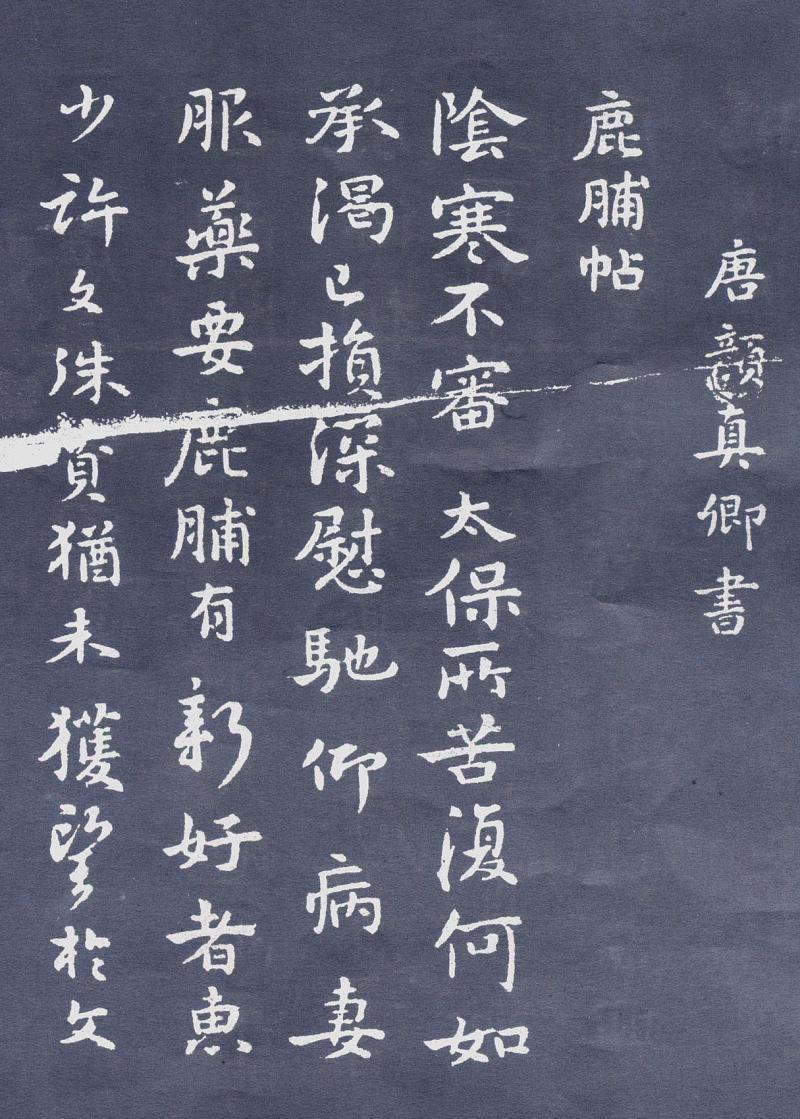 唐顏真卿書
鹿脯帖
陰寒不審 太保所苦復何如
承渴已損深慰馳仰病妻
服藥要鹿脯有新好者惠
少許文殊質猶未獲望於文